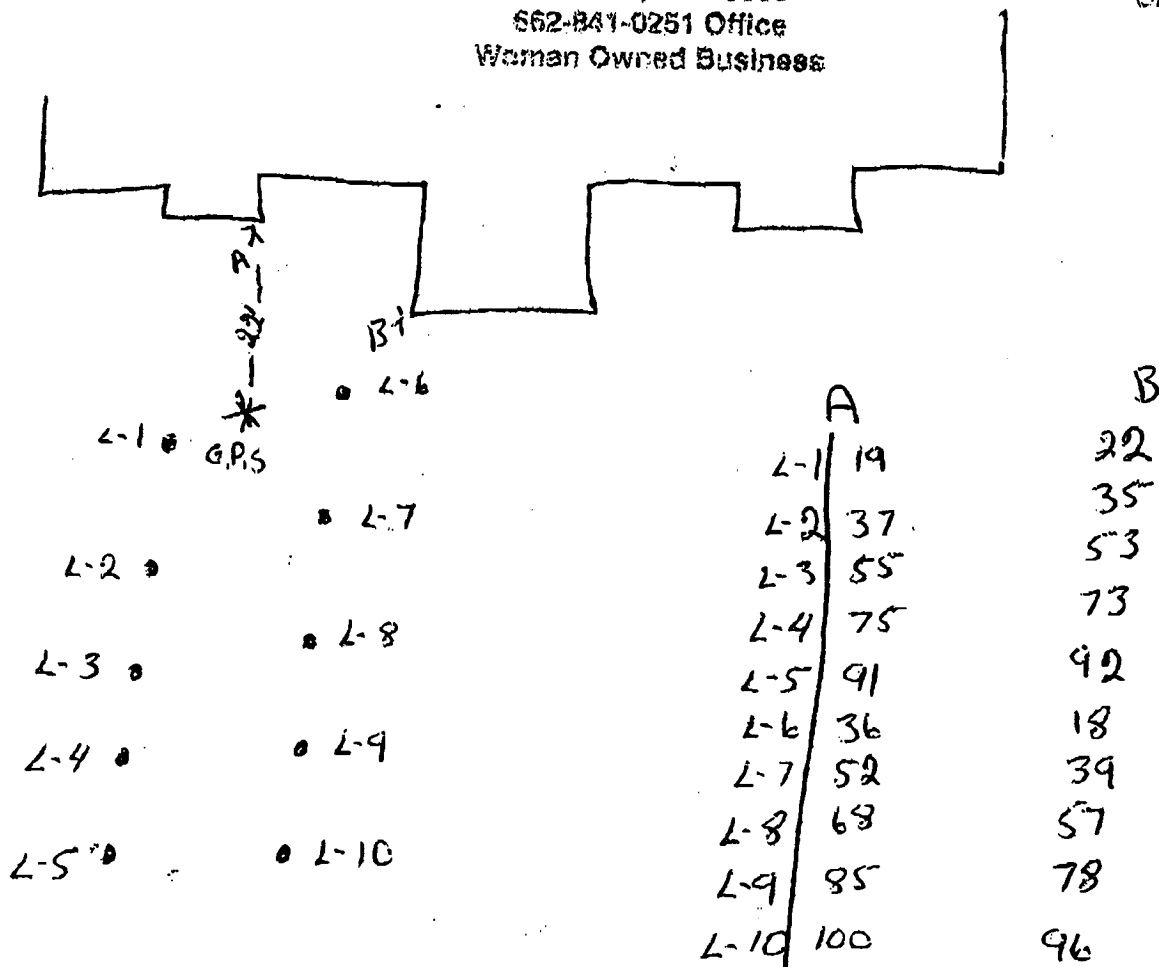 662-841-0251 Office
Woman Owned Business
22
B
L-6
L-1
G.P.S
L-7
L-2
L-8
L-3
L-4
L-9
L-5
L-10
A B
L-1 19 22
L-2 37 35
L-3 55 53
L-4 75 73
L-5 91 92
L-6 36 18
L-7 52 39
L-8 68 57
L-9 85 78
L-10 100 96